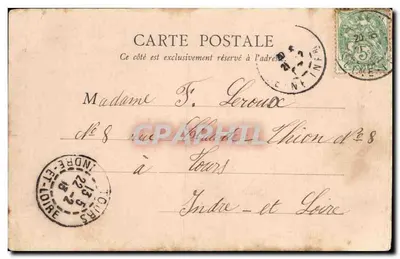 CARTE POSTALE
Ce côté est exclusivement réservé à l'adresse
Madame F. Leroux
Nº 8 rue Thion Nº 8
à Tours
Indre-et-Loire
TOURS
INDRE-ET-LOIRE
13 5
22-2
CPARAMA